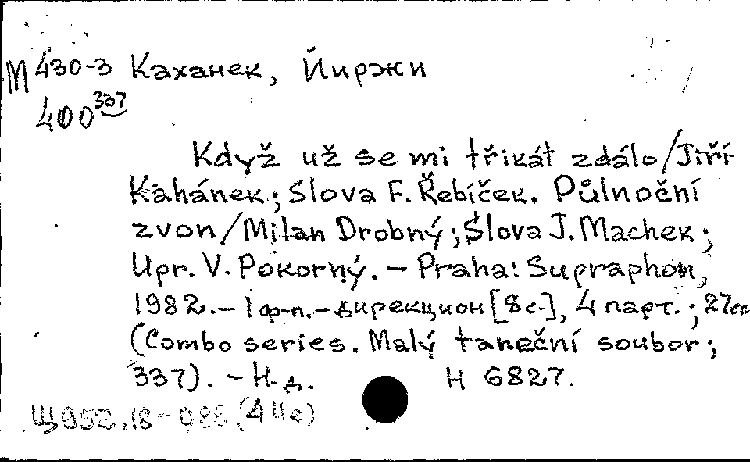 М 430-3 Каханек, Йиржи
400 337
Když už se mi třikát zdálo/Jiří
Kahánek; Slova F. Řebíček. Půlnoční
zvon/Milan Drobný; Slova J. Machek;
Upr. V. Pokorný. – Praha: Supraphon,
1982. – 1 ф-п.-дирекцион [8 с.], 4 парт.; 27см
(Combo series. Malý taneční soubor;
337). – Н. д. H 6827.
Щ952.18-